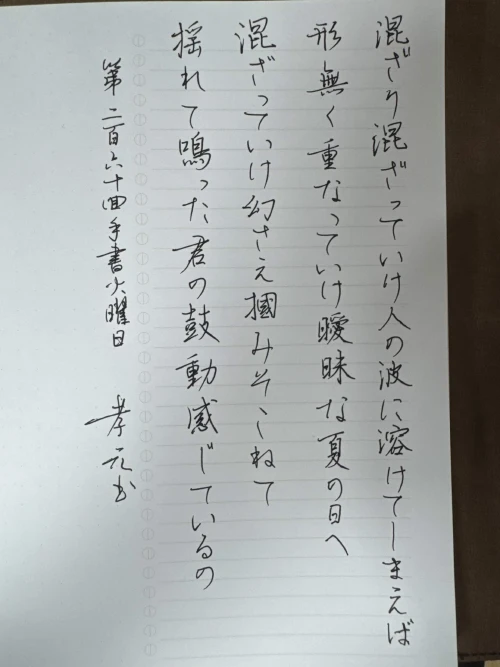 混ざり混ざっていけ人の波に溶けてしまえば
形無く重なっていけ曖昧な夏の日へ
混ざっていけ幻さえ掴みそこねて
揺れて鳴った君の鼓動感じているの
第二百六十回手書火曜日
孝元书